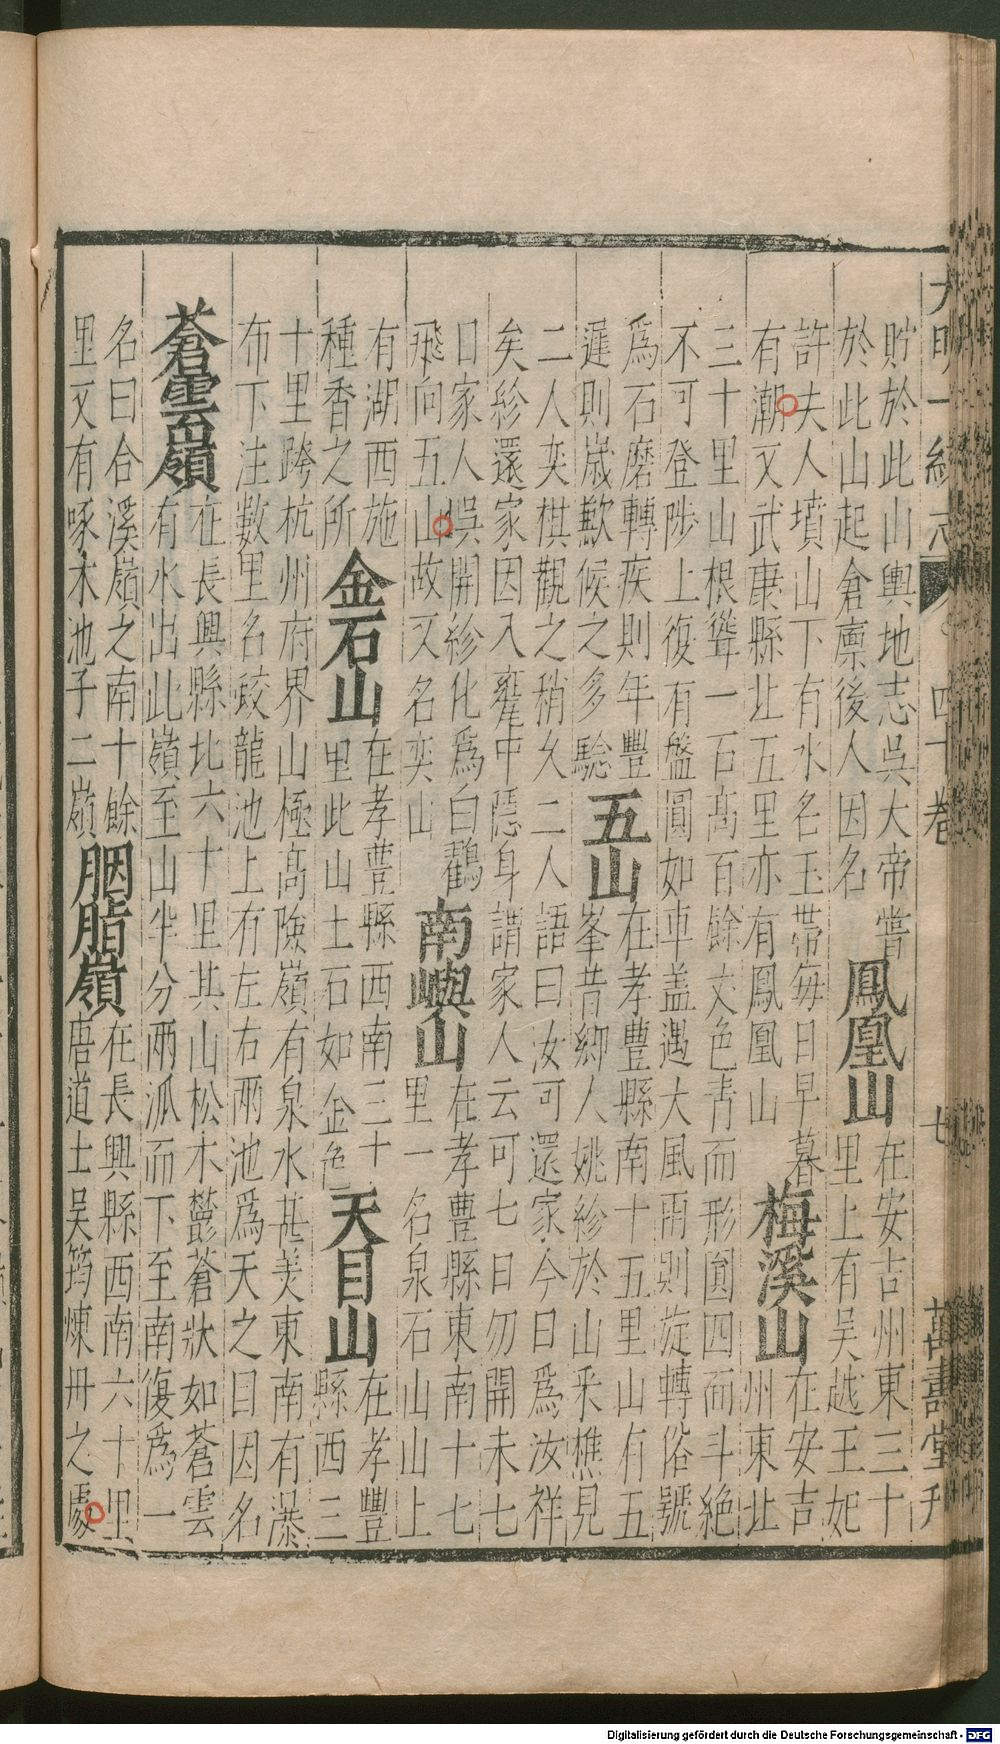 大明一統志 四十卷 七 萬壽堂刋
貯於此山輿地志吳大帝嘗
於此山起倉廪後人因名
鳳凰山
在安吉州東三十
里上有吳越王妃
許夫人墳山下有水名玉帶每日早暮
有潮又武康縣北五里亦有鳳凰山
梅溪山
在安吉
州東北
三十里山根聳一石高百餘丈色青而形圓四面斗絶
不可登陟上復有盤圓如車盖遇大風雨則旋轉俗號
為石磨轉疾則年豐
遲則歲歉候之多驗
五山
在孝豐縣南十五里山有五
峯昔鄉人姚紾於山采樵見
二人奕棋觀之稍久二人語曰汝可還家今日為汝祥
矣紾還家因入甕中隠身謂家人云可七日勿開未七
日家人吳開紾化為白鶴
飛向五山故又名奕山
南嶼山
在孝豐縣東南十七
里一名泉石山山上
有湖西施
種香之所
金石山
在孝豐縣西南三十
里此山土石如金色
天目山
在孝豐
縣西三
十里跨杭州府界山極高險嶺有泉水甚美東南有瀑
布下注數里名蛟龍池上有左右兩池為天之目因名
蒼雲嶺
在長興縣北六十里其山松木鬱蒼狀如蒼雲
有水出此嶺至山半分兩派而下至南復為一
名曰合溪嶺之南十餘
里又有啄木池子二嶺
胭脂嶺
在長興縣西南六十里
唐道士吳筠煉丹之處
Digitalisierung gefördert durch die Deutsche Forschungsgemeinschaft - DFG